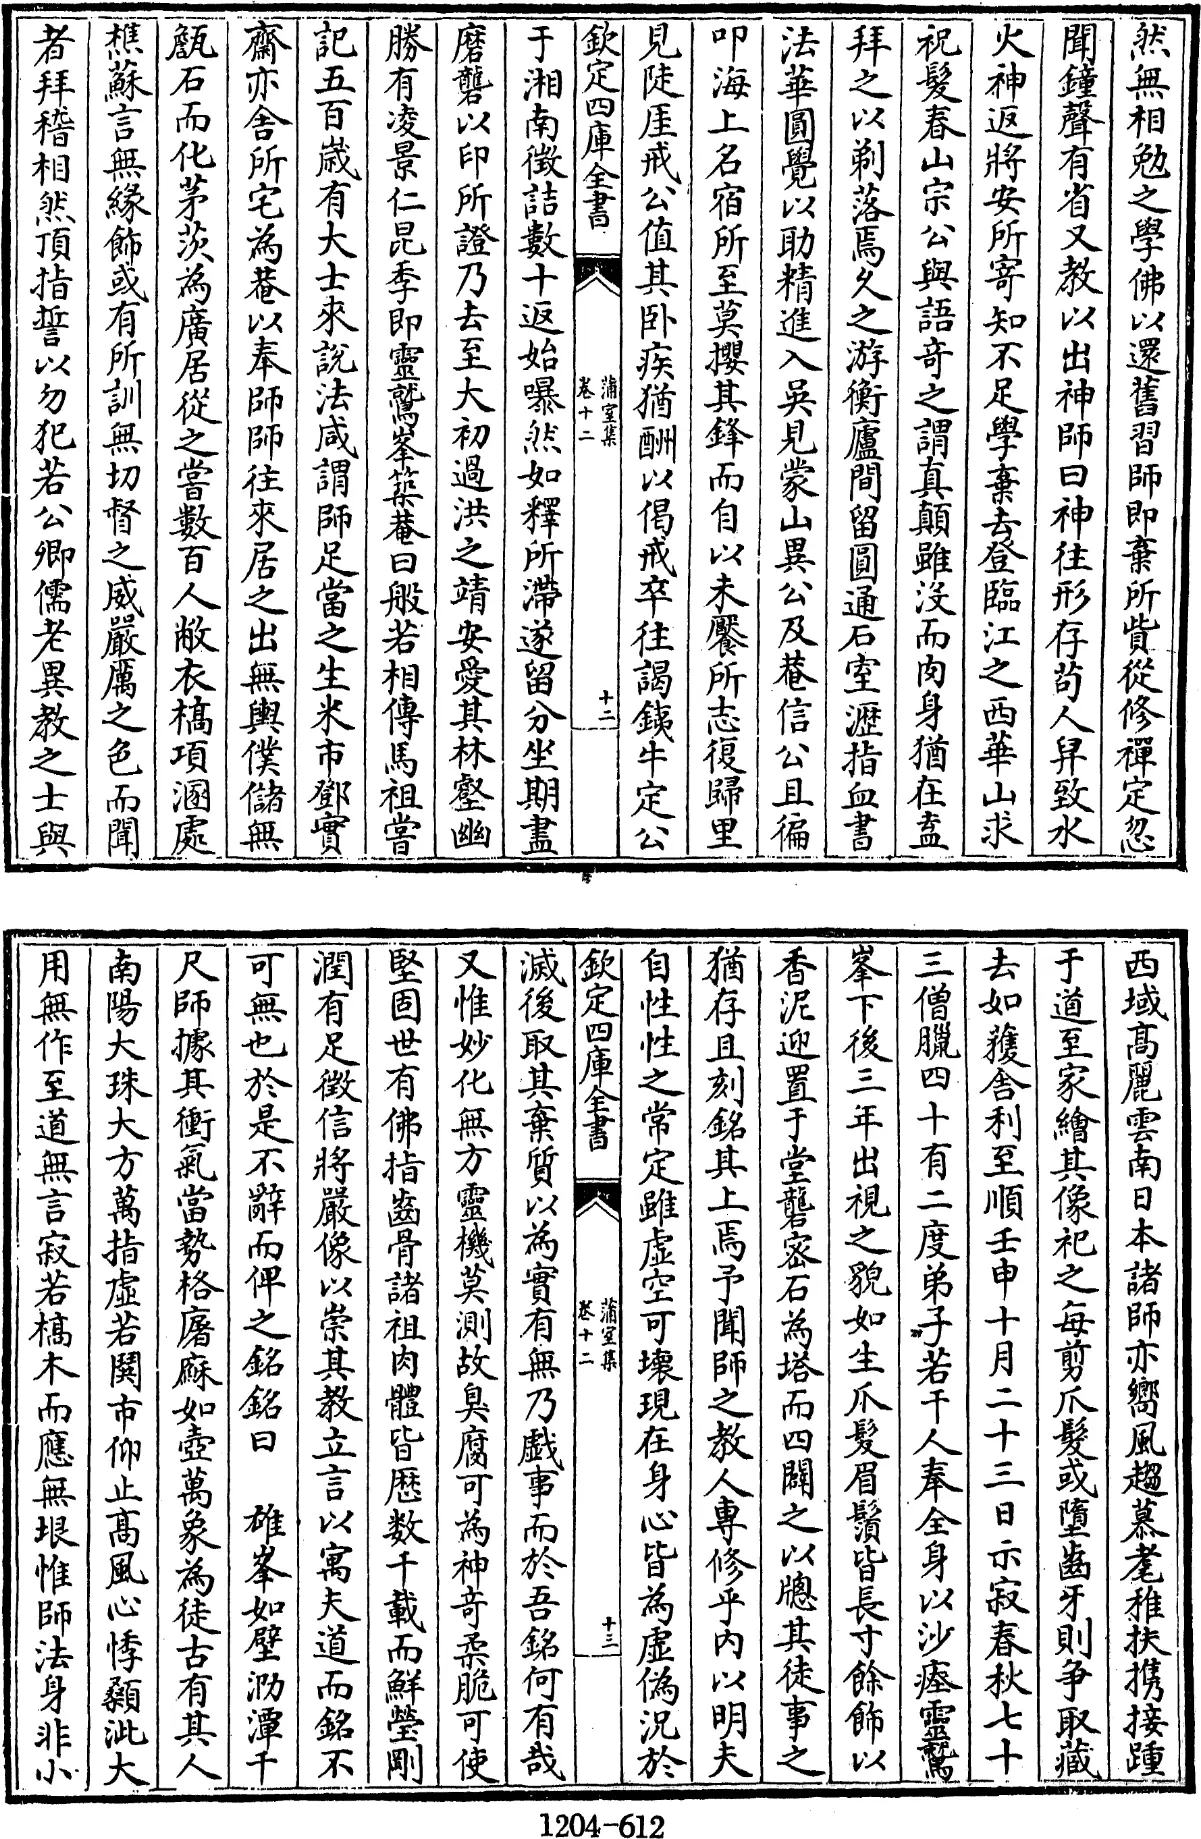 然無相勉之學佛以還舊習師即棄所貲從修禪定忽
聞鐘聲有省又教以出神師曰神往形存苟人舁致水
火神返將安所寄知不足學棄去登臨江之西華山求
祝髮春山宗公與語奇之謂真顛雖沒而肉身猶在盍
拜之以剃落焉久之游衡廬間留圓通石室瀝指血書
法華圓覺以助精進入吳見蒙山異公及菴信公且徧
叩海上名宿所至莫攖其鋒而自以未饜所志復歸里
見陡厓戒公值其卧疾猶酬以偈戒卒往謁鐵牛定公
欽定四庫全書
蒲室集
卷十二
十二
于湘南徵詰數十返始曝然如釋所滯遂留分坐期盡
磨礱以印所證乃去至大初過洪之靖安愛其林壑幽
勝有凌景仁昆季即靈鷲峯築菴曰般若相傳馬祖嘗
記五百歲有大士來說法咸謂師足當之生米市鄧實
齋亦舍所宅為菴以奉師師往來居之出無輿僕儲無
甔石而化茅茨為廣居從之嘗數百人敝衣槁項溷處
樵蘇言無緣飾或有所訓無切督之威嚴厲之色而聞
者拜稽相然頂指誓以勿犯若公卿儒老異教之士與
西域高麗雲南日本諸師亦嚮風趨慕耄稚扶攜接踵
于道至家繪其像祀之每剪爪髮或墮齒牙則争取藏
去如獲舍利至順壬申十月二十三日示寂春秋七十
三僧臘四十有二度弟子若干人奉全身以沙瘞靈鷲
峯下後三年出視之貌如生爪髮眉鬚皆長寸餘飾以
香泥迎置于堂礱密石為塔而四闢之以牕其徒事之
猶存且刻銘其上焉予聞師之教人專修乎内以明夫
自性性之常定雖虚空可壞現在身心皆為虚偽況於
欽定四庫全書
蒲室集
卷十二
十三
滅後取其棄質以為實有無乃戲事而於吾銘何有哉
又惟妙化無方靈機莫測故臭腐可為神奇柔脆可使
堅固世有佛指齒骨諸祖肉體皆歴數千載而鮮瑩剛
潤有足徵信將嚴像以崇其教立言以寓夫道而銘不
可無也於是不辭而俾之銘銘曰　雄峯如壁泐潭千
尺師據其衝氣當勢格屠麻如壺萬象為徒古有其人
南陽大珠大方萬指虚若鬨市仰止高風心悸顙泚大
用無作至道無言寂若槁木而應無垠惟師法身非小
1204-612